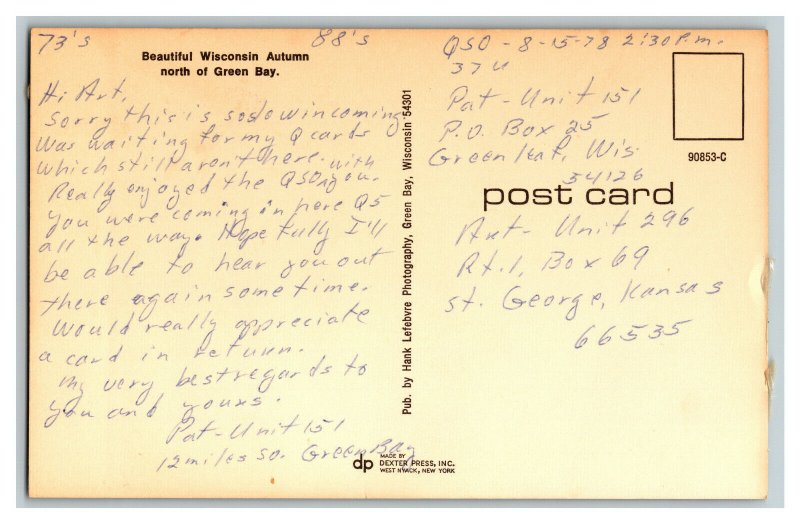 73's 88's
Beautiful Wisconsin Autumn
north of Green Bay.
Hi Art,
Sorry this is so slow in coming
Was waiting for my Q cards
which still aren't here.
Really enjoyed the QSO with you.
You were coming in here Q5
all the way. Hopefully I'll
be able to hear you out
there again sometime.
Would really appreciate
a card in return.
My very best regards to
you and yours.
Pat-Unit 151
12 miles so. Green Bay
Pub. by Hank Lefebvre Photography, Green Bay, Wisconsin 54301
dp MADE BY
DEXTER PRESS, INC.
WEST NYACK, NEW YORK
QSO - 8-15-78 2:30 P.m.
Pat-Unit 151
P.O. Box 25
Greenleaf, Wis.
54126
90853-C
post card
Art- Unit 296
Rt. 1, Box 69
St. George, Kansas
66535